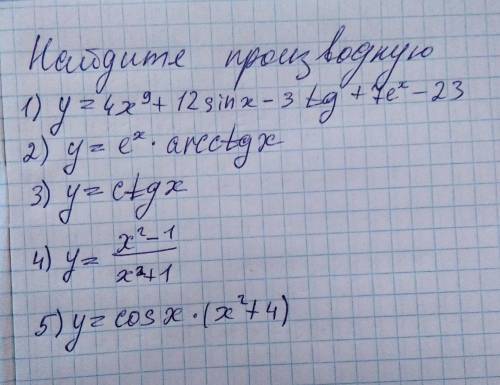 Найдите производную
1) y = 4x⁹ + 12 sinx - 3 tg + 7eˣ - 23
2) y = eˣ · arcctgx
3) y = ctgx
4) y = x² - 1 / x² + 1
5) y = cosx · (x² + 4)